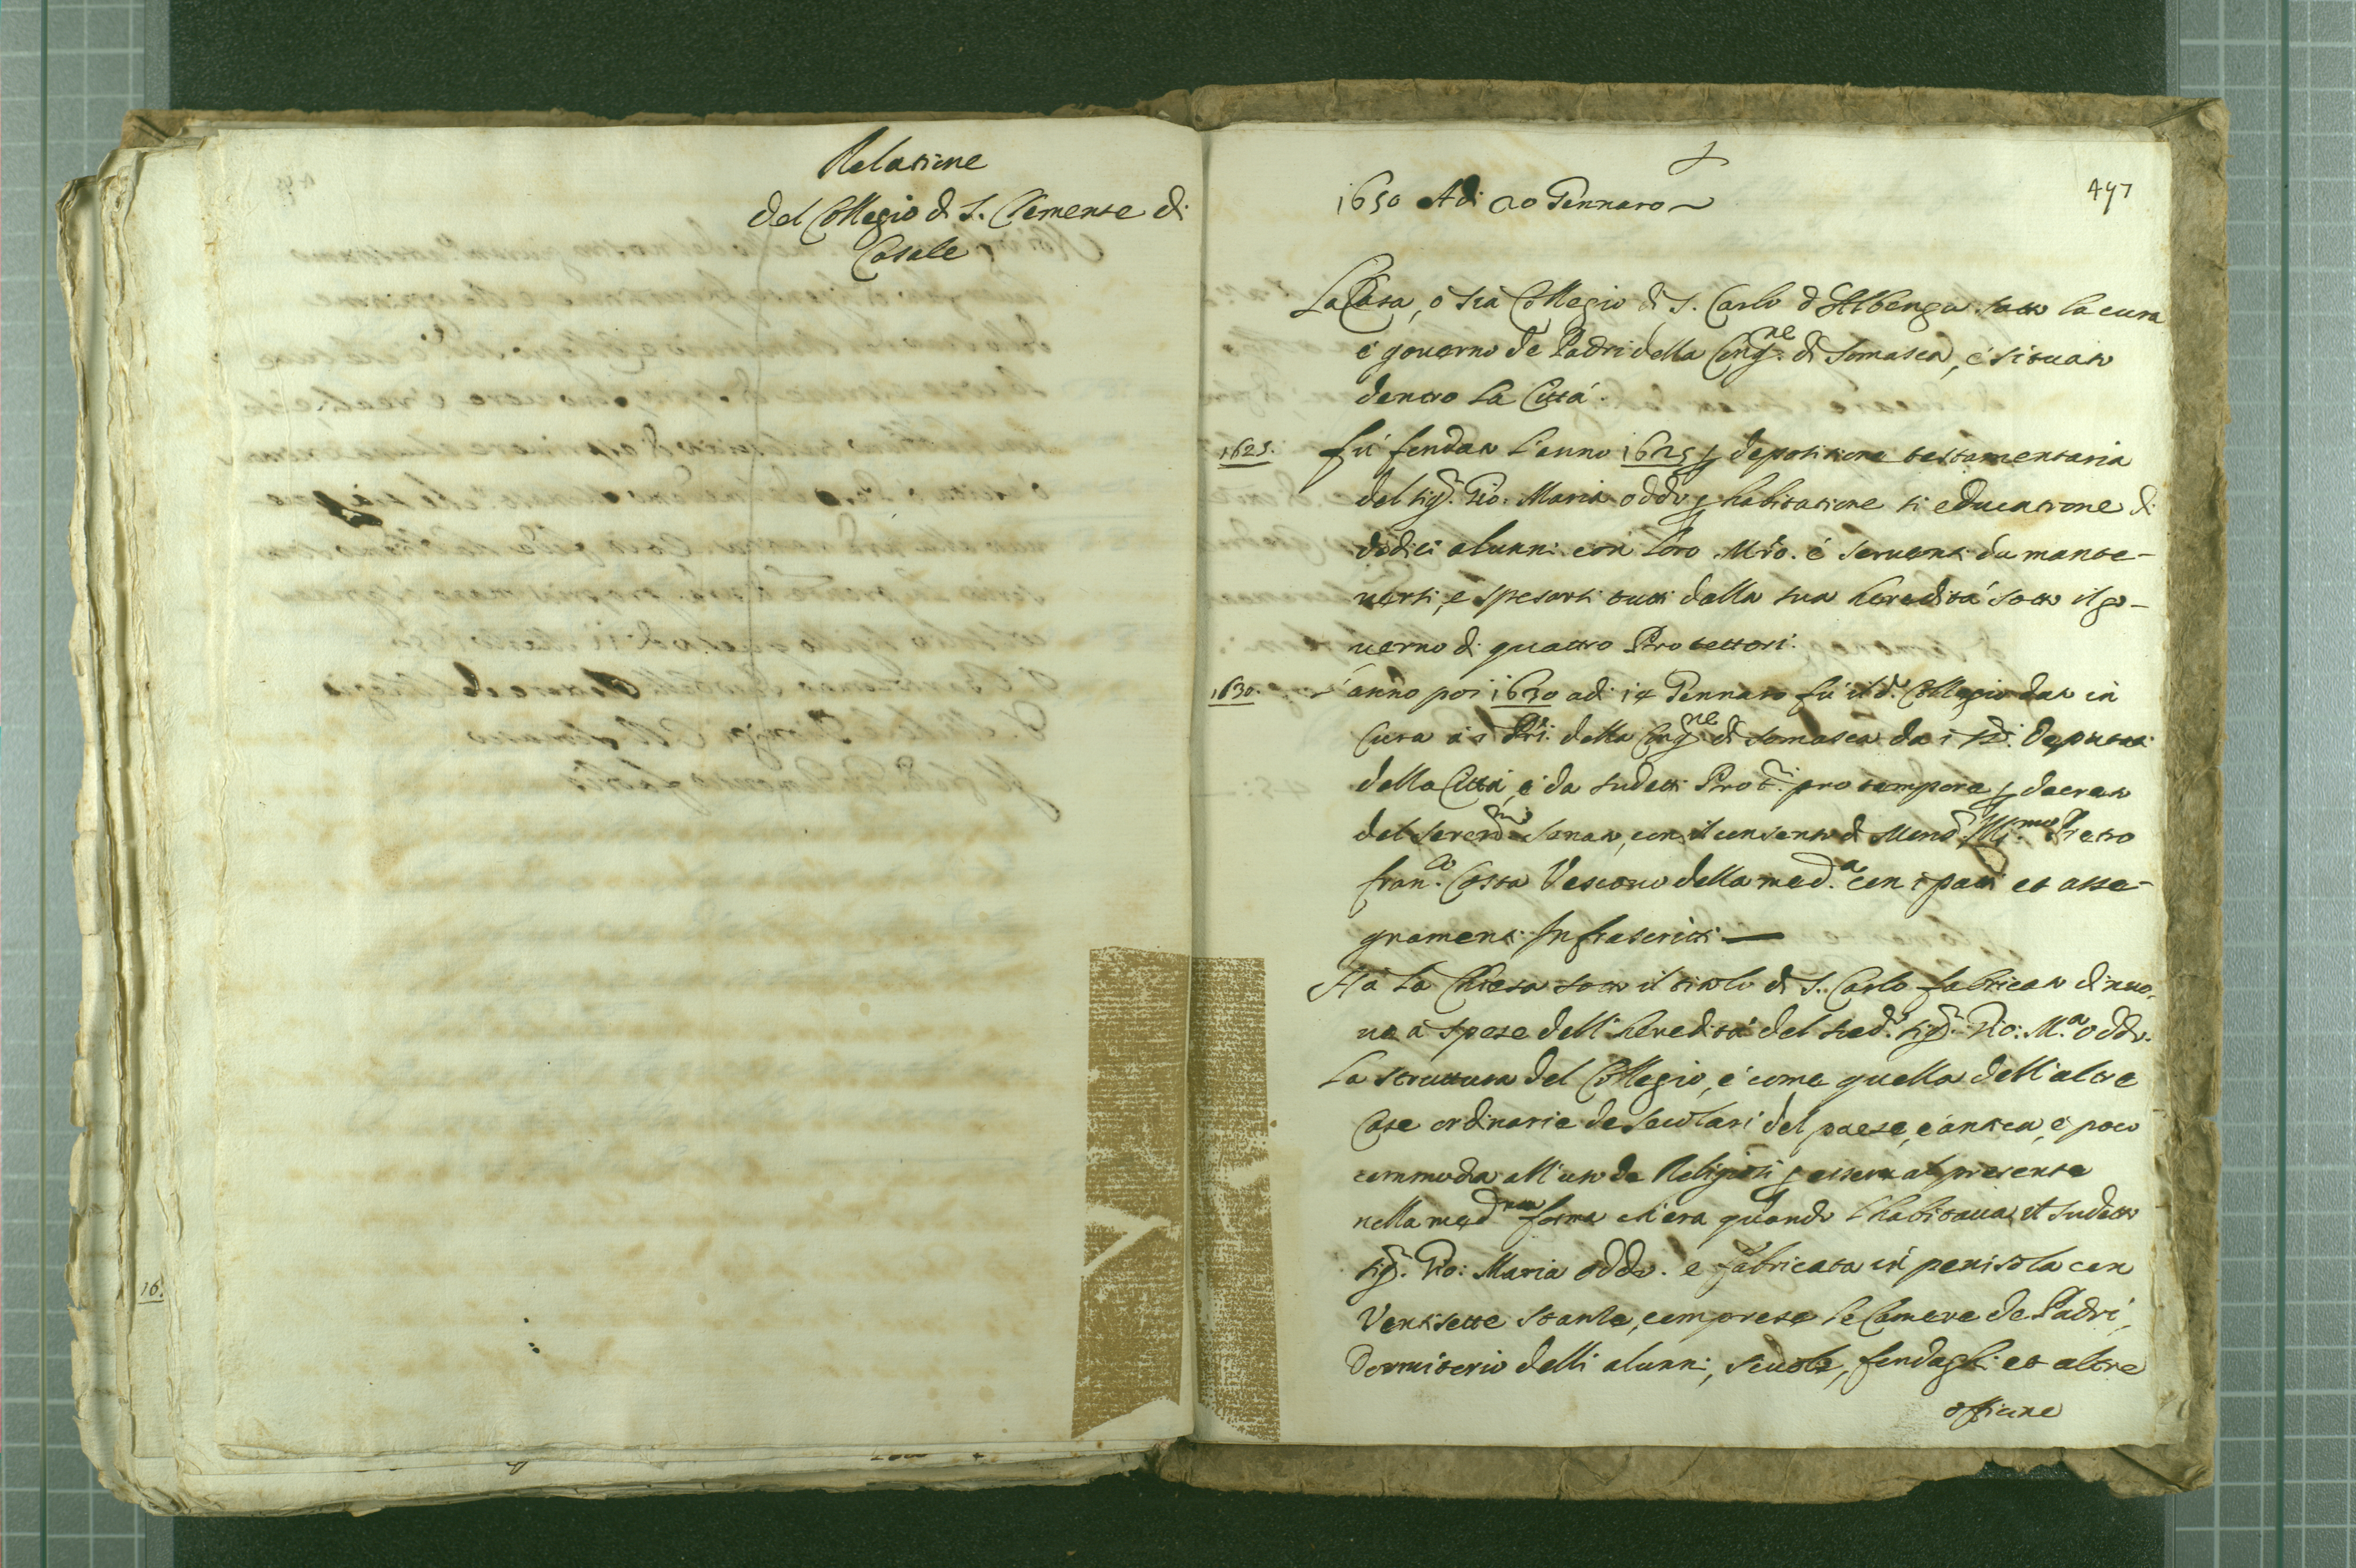 Relatione
del Collegio di S. Clemente di
Casale
16.
497
1650 Adi 20 Gennaro
La Casa, o sia Collegio di S. Carlo d'Albenga sotto la cura
e governo de Padri della Cong.ne di Somasca, è situato
dentro la Città.
1625. fù fondato l'anno 1625 p depositione testamentaria
del sig.r Gio: Maria oddo p habitatione et educatione di
dodici alunni con loro Mro. é serventi da mante-
nersi, e spesarsi tutti dalla sua heredità sotto il go-
verno di quattro Protettori.
1630. L'anno poi 1630 adi 14 Gennaro fù il d.o Collegio dato in
Cura a i Pri. della Cong.ne di Somasca da i Deputati
della Città, é da sudetti Prot.ri pro tempore p decreto
del seren.mo Senato, con il consenso di Mons.r Ill.mo Pietro
fran.co Costa Vescovo della med.a con i patti et asse-
gnamenti Infrascritti
Hà la Chiesa sotto il titolo di S. Carlo fabricata di nuo-
va à spese dell'heredità del sud.o sig.r Gio: M.a oddo.
La struttura del Collegio, é come quella dell'altre
Case ordinarie de secolari del paese, é antica, é poco
commoda all'uso de Religiosi p essere al presente
nella med.ma forma ch'era quando l'habitava il sudetto
sig.r Gio: Maria oddo. e fabricata in penisola con
Ventisette stanze, comprese le Camere de Padri,
Dormitorio delli alunni, scuole, fondaghi et altre
officine